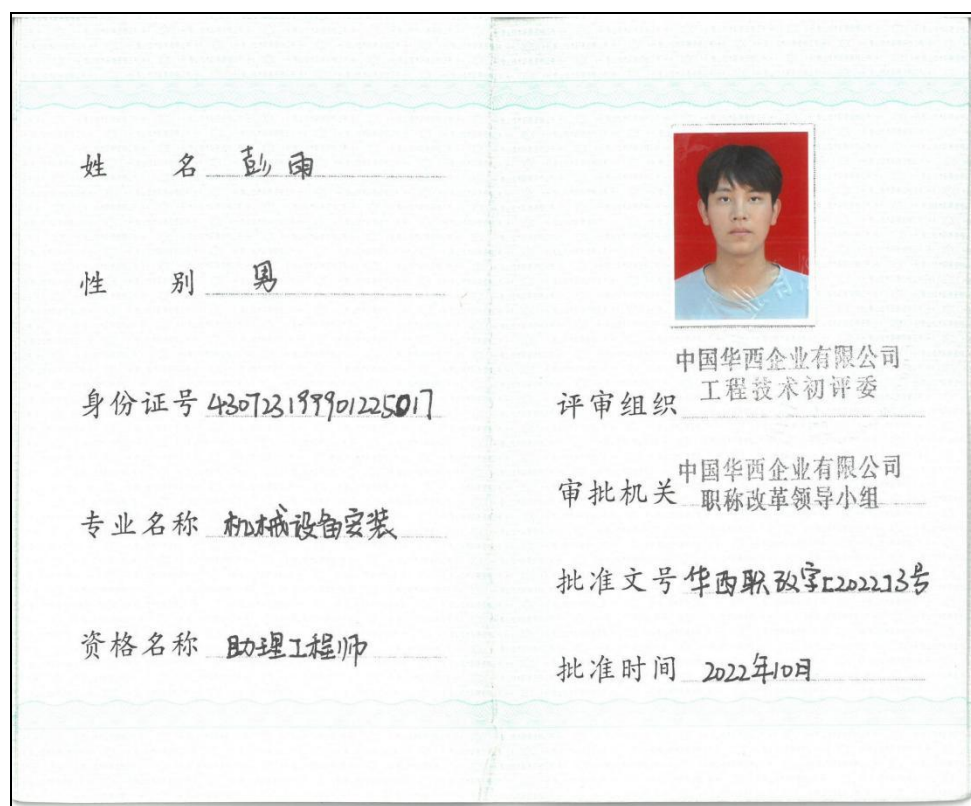 姓 名 彭雨
性 别 男
身份证号 430723199901225017
专业名称 机械设备安装
资格名称 助理工程师
中国华西企业有限公司
评审组织 工程技术初评委
中国华西企业有限公司
审批机关 职称改革领导小组
批准文号 华西职改字[2022]3号
批准时间 2022年10月